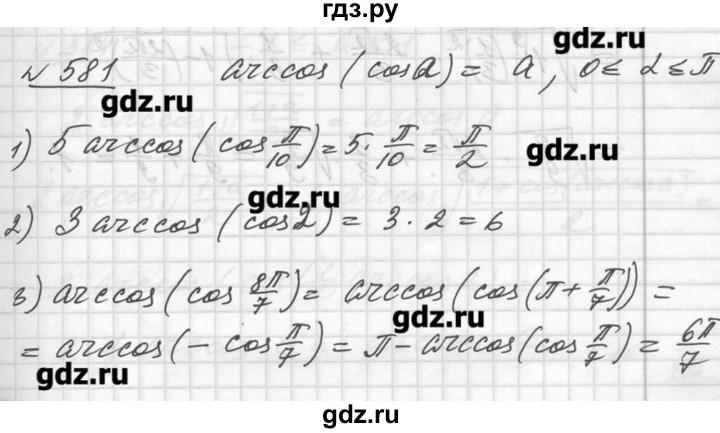 гдз.ру
gdz.ru
№ 581 arccos(cos α) = α, 0 ≤ α ≤ π
gdz.ru
1) 5 arccos(cos π/10) = 5 · π/10 = π/2
gdz.ru
gdz.ru
2) 3 arccos(cos 2) = 3 · 2 = 6
3) arccos(cos 8π/7) = arccos(cos(π + π/7)) =
gdz.ru
= arccos(− cos π/7) = π − arccos(cos π/7) = 6π/7
gdz.ru
gdz.ru